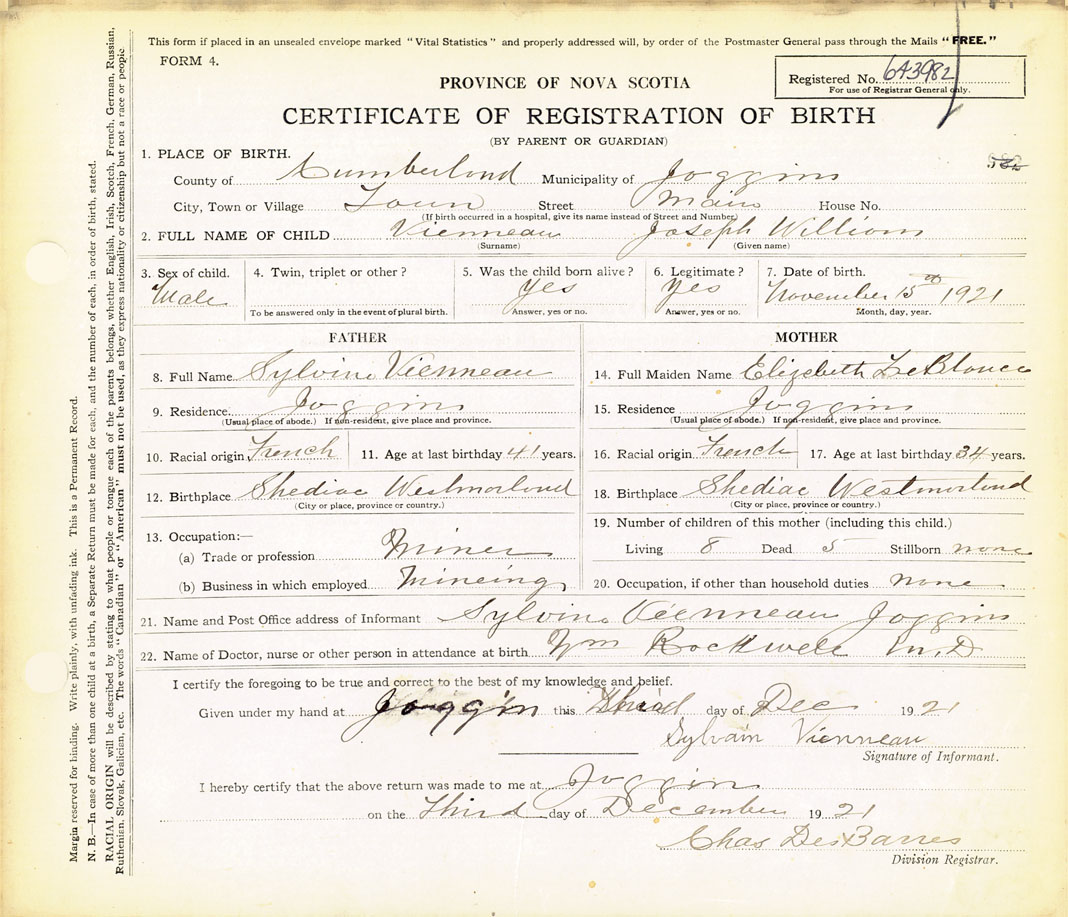 This form if placed in an unsealed envelope marked "Vital Statistics" and properly addressed will, by order of the Postmaster General pass through the Mails "FREE."
FORM 4.
Registered No. 643982
For use of Registrar General only.
PROVINCE OF NOVA SCOTIA
CERTIFICATE OF REGISTRATION OF BIRTH
(BY PARENT OR GUARDIAN)
1. PLACE OF BIRTH.
County of Cumberland Municipality of Joggins
City, Town or Village Town Street Main House No.
(If birth occurred in a hospital, give its name instead of Street and Number)
2. FULL NAME OF CHILD Vienneau Joseph William
(Surname) (Given name)
3. Sex of child. 4. Twin, triplet or other? 5. Was the child born alive? 6. Legitimate? 7. Date of birth.
Male yes yes November 15th 1921
To be answered only in the event of plural birth. Answer, yes or no. Answer, yes or no. Month, day, year.
FATHER MOTHER
8. Full Name Sylvine Vienneau 14. Full Maiden Name Elizabeth LeBlance
9. Residence. Joggins 15. Residence Joggins
(Usual place of abode.) If non-resident, give place and province. (Usual place of abode.) If non-resident, give place and province.
10. Racial origin French 11. Age at last birthday 41 years. 16. Racial origin French 17. Age at last birthday 34 years.
12. Birthplace Shediac Westmorlond 18. Birthplace Shediac Westmorlond
(City or place, province or country.) (City or place, province or country.)
13. Occupation:— 19. Number of children of this mother (including this child.)
(a) Trade or profession Miner Living 8 Dead 5 Stillborn none
(b) Business in which employed Mineing 20. Occupation, if other than household duties none
21. Name and Post Office address of Informant Sylvine Vienneau Joggins
22. Name of Doctor, nurse or other person in attendance at birth Wm Rockwell M.D
I certify the foregoing to be true and correct to the best of my knowledge and belief.
Given under my hand at Joggin this Third day of Dec 1921
Sylvain Vienneau
Signature of Informant.
I hereby certify that the above return was made to me at Joggins
on the Third day of December 1921
Chas DesBarres
Division Registrar.
Margin reserved for binding. Write plainly, with unfading ink. This is a Permanent Record.
N. B.—In case of more than one child at a birth, a Separate Return must be made for each, and the number of each, in order of birth, stated.
RACIAL ORIGIN will be described by stating to what people or tongue each of the parents belongs, whether English, Irish, Scotch, French, German, Russian,
Ruthenian, Slovak, Galician, etc. The words "Canadian" or "American" must not be used, as they express nationality or citizenship but not a race or people